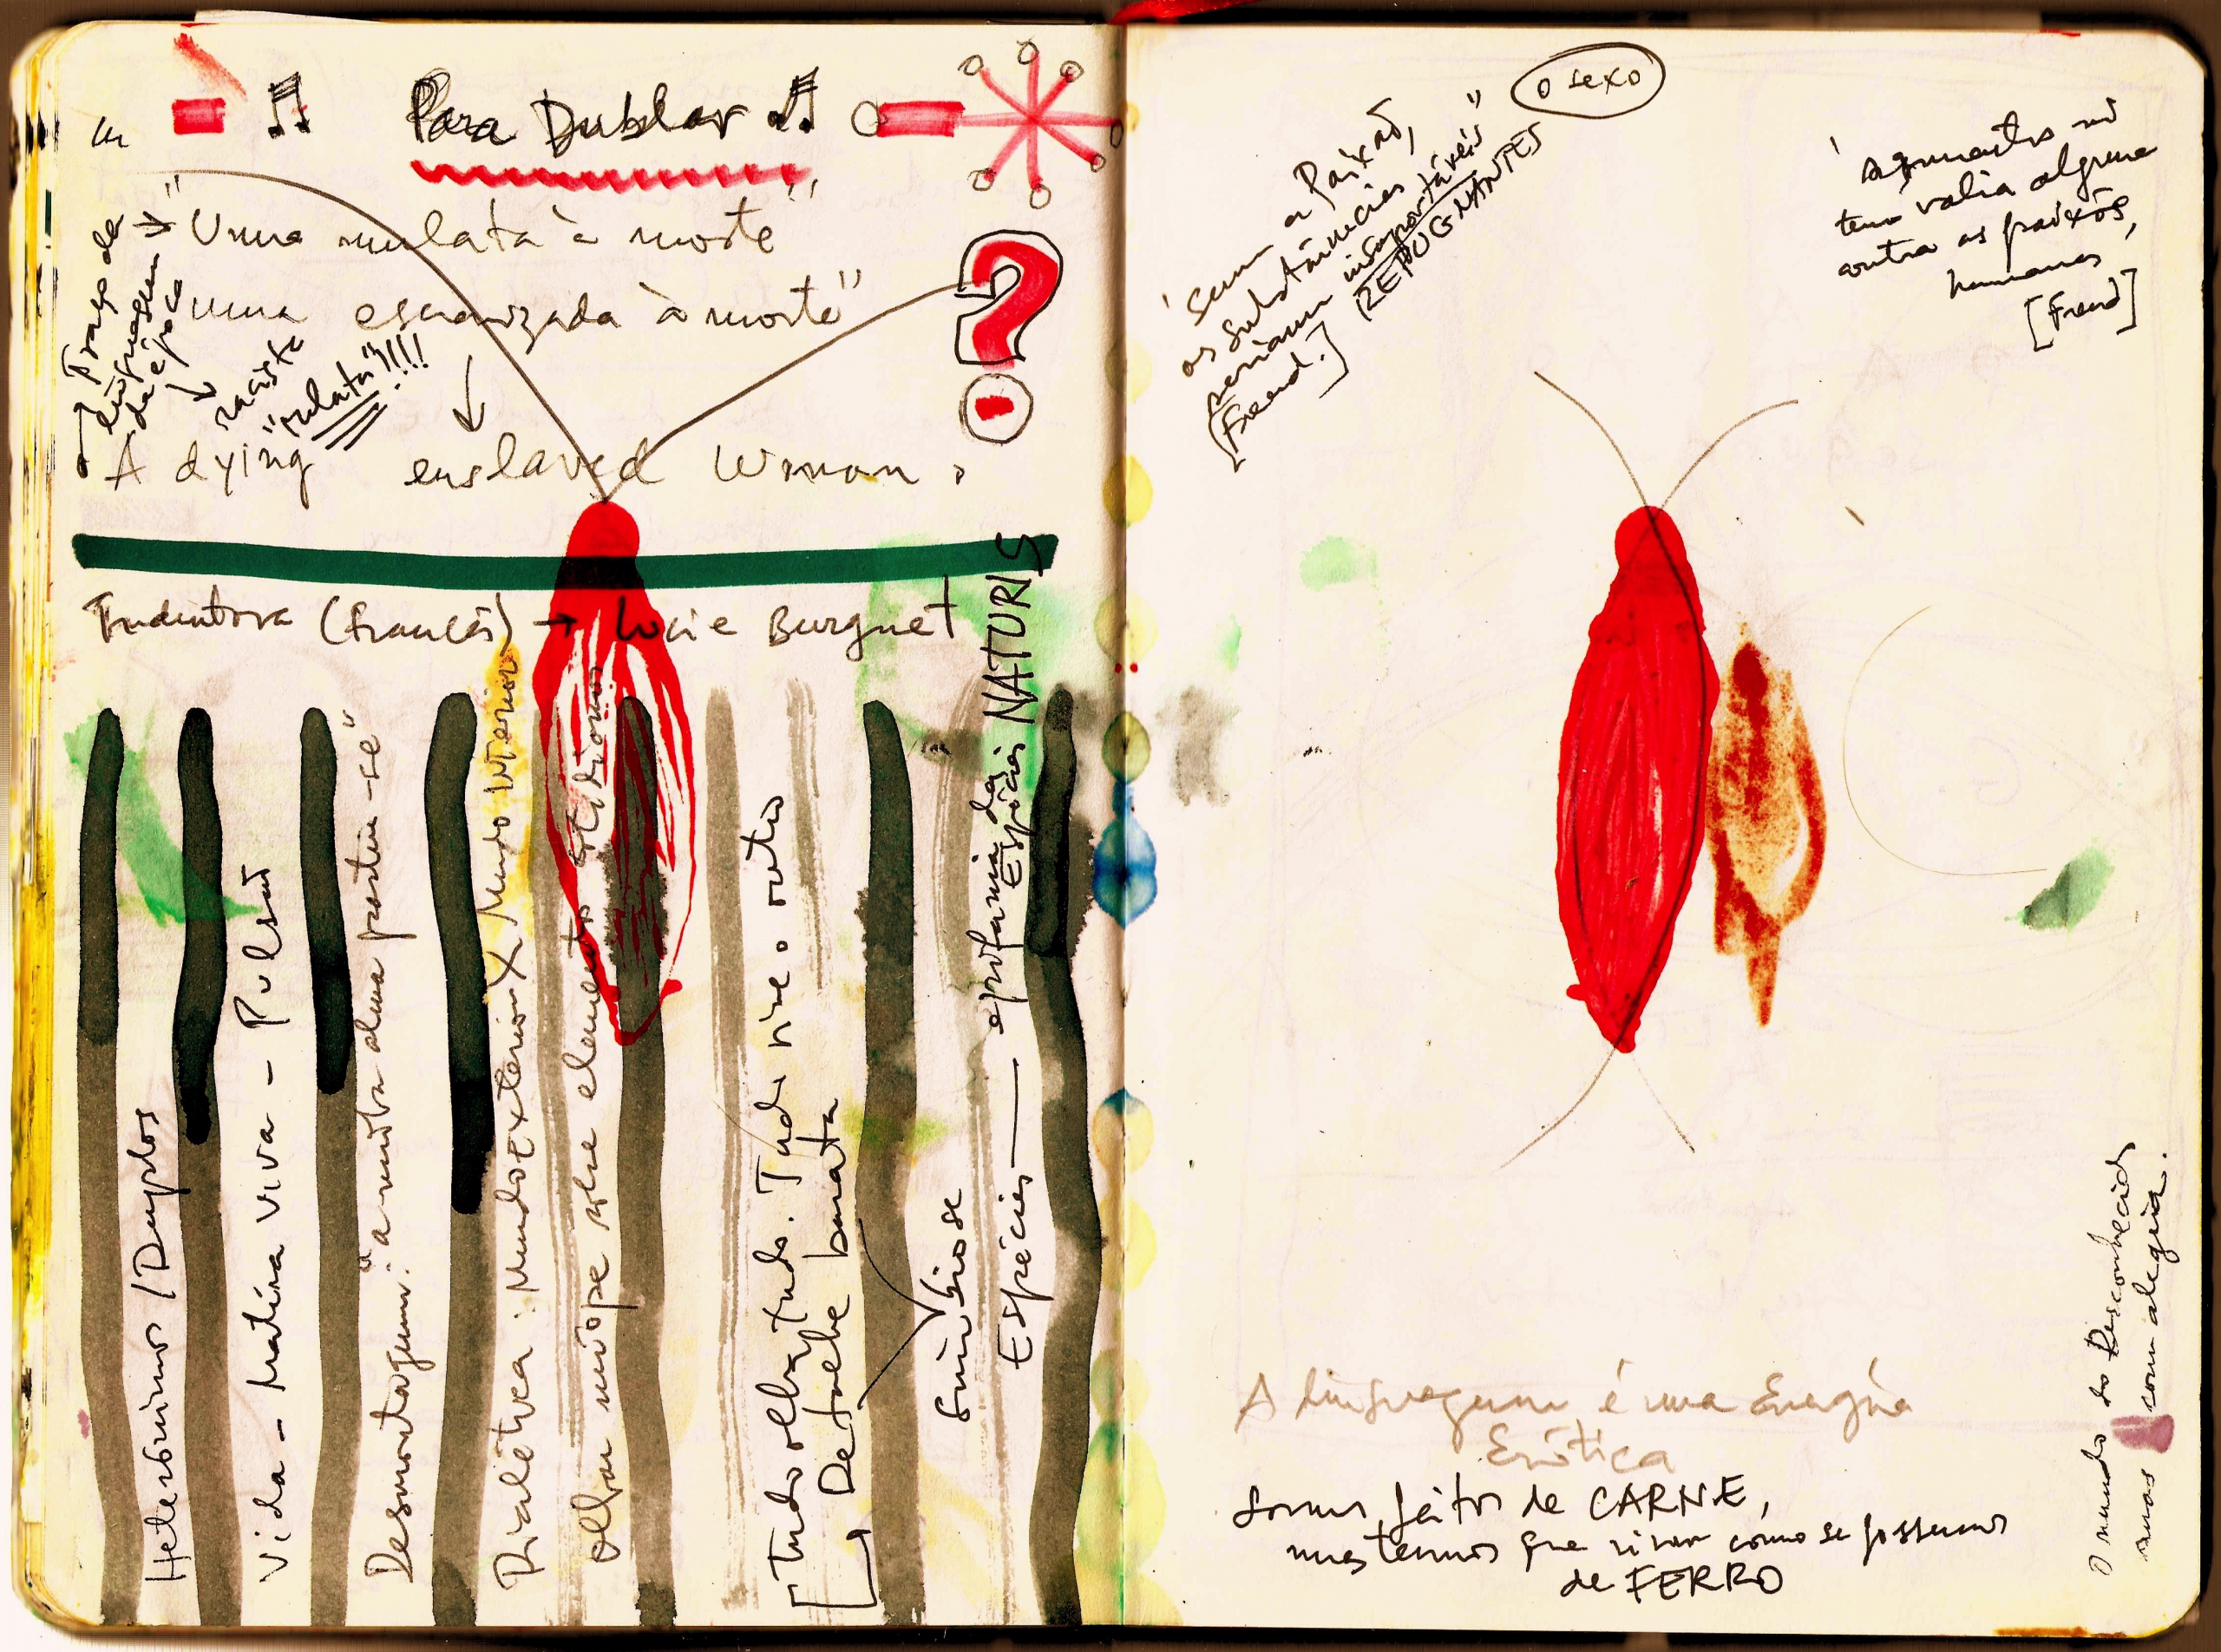 Para Dublar
"Uma mulata à morte"
"uma escravizada à morte"
Traço da
linguagem
da época
racista
"mulata"!!!!
A dying enslaved Woman.
Tradutora (francês) → Lucie Burguet
Heterônimos / Duplos
Vida - Matéria viva - Pulsão
Desmontagem: "a minha alma partiu-se"
Dialética: Mundo Exterior X Mundo Interior
olhar míope sobre elementos cotidianos
[Tudo olha tudo. Tudo vive o outro
Detalhe barata
Simbiose
Espécies — epifania das
Espécies NATURIS
o sexo
'Sem a Paixão,
as substâncias
seriam insuportáveis"
REPUGNANTES
[Freud.]
'Argumentos não
tem valia alguma
contra as paixões
humanas'
[Freud]
A linguagem é uma Energia
Erótica
Somos feitos de CARNE,
mas temos que viver como se fossemos
de FERRO
O mundo do Desconhecido
mas com alegria.